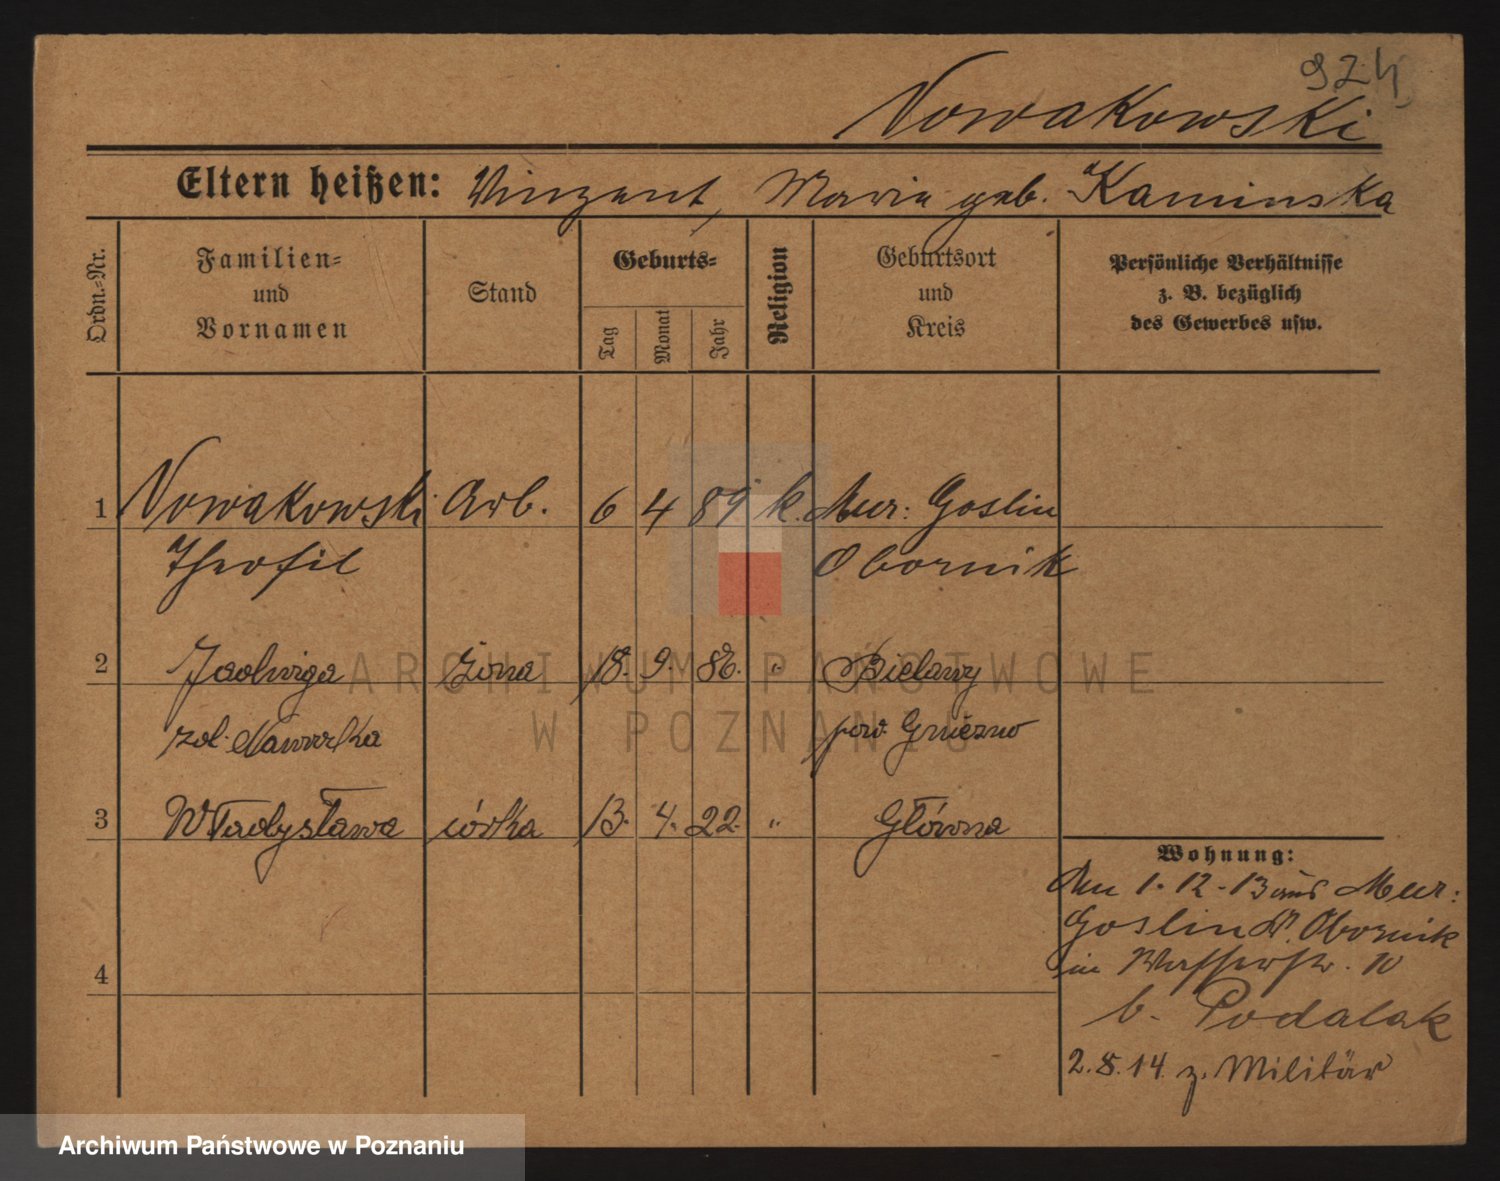 924
Nowakowski
Eltern heißen: Vinzent, Marie geb. Kaminska
Ordn.=Nr.
Familien=
und
Vornamen
Stand
Geburts=
Tag
Monat
Jahr
Religion
Geburtsort
und
Kreis
Persönliche Verhältnisse
z. B. bezüglich
des Gewerbes usw.
1 Nowakowski Arb. 6 4 89 k. Mur: Goslin
Theofil Obornik
2 Jadwiga żona 18. 9. 86. " Bielawy
zd. Nawrotka pow. Gniezno
3 Władysława córka 13. 4. 22. " Główna
4
Wohnung:
Am 1.12.13 aus Mur:
Goslin Kr. Obornik
in Wasserstr. 10
b. Podalak
2.8.14 z. Militär
ARCHIWUM PAŃSTWOWE
W POZNANIU
Archiwum Państwowe w Poznaniu